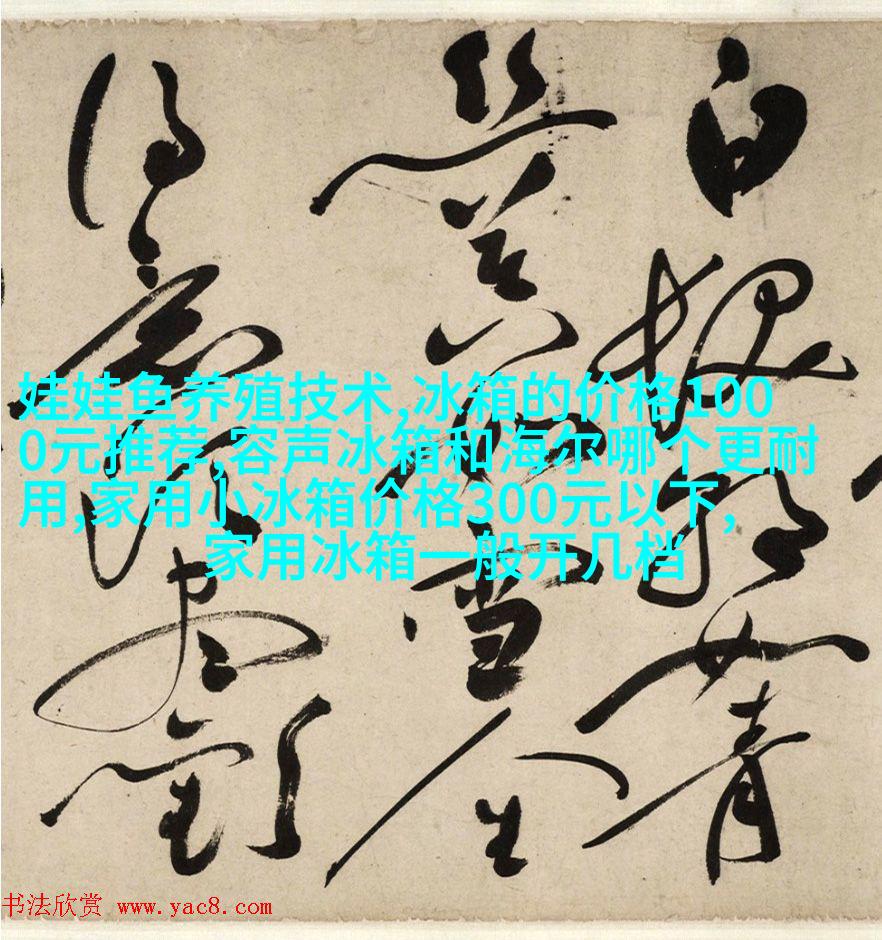 白髮朝如青
絲暮雪人生
得意須盡歡
娃娃鱼养殖技术,冰箱的价格100
0元推荐,容声冰箱和海尔哪个更耐
用,家用小冰箱价格300元以下,
家用冰箱一般开几档
书法欣赏 www.yac8.com